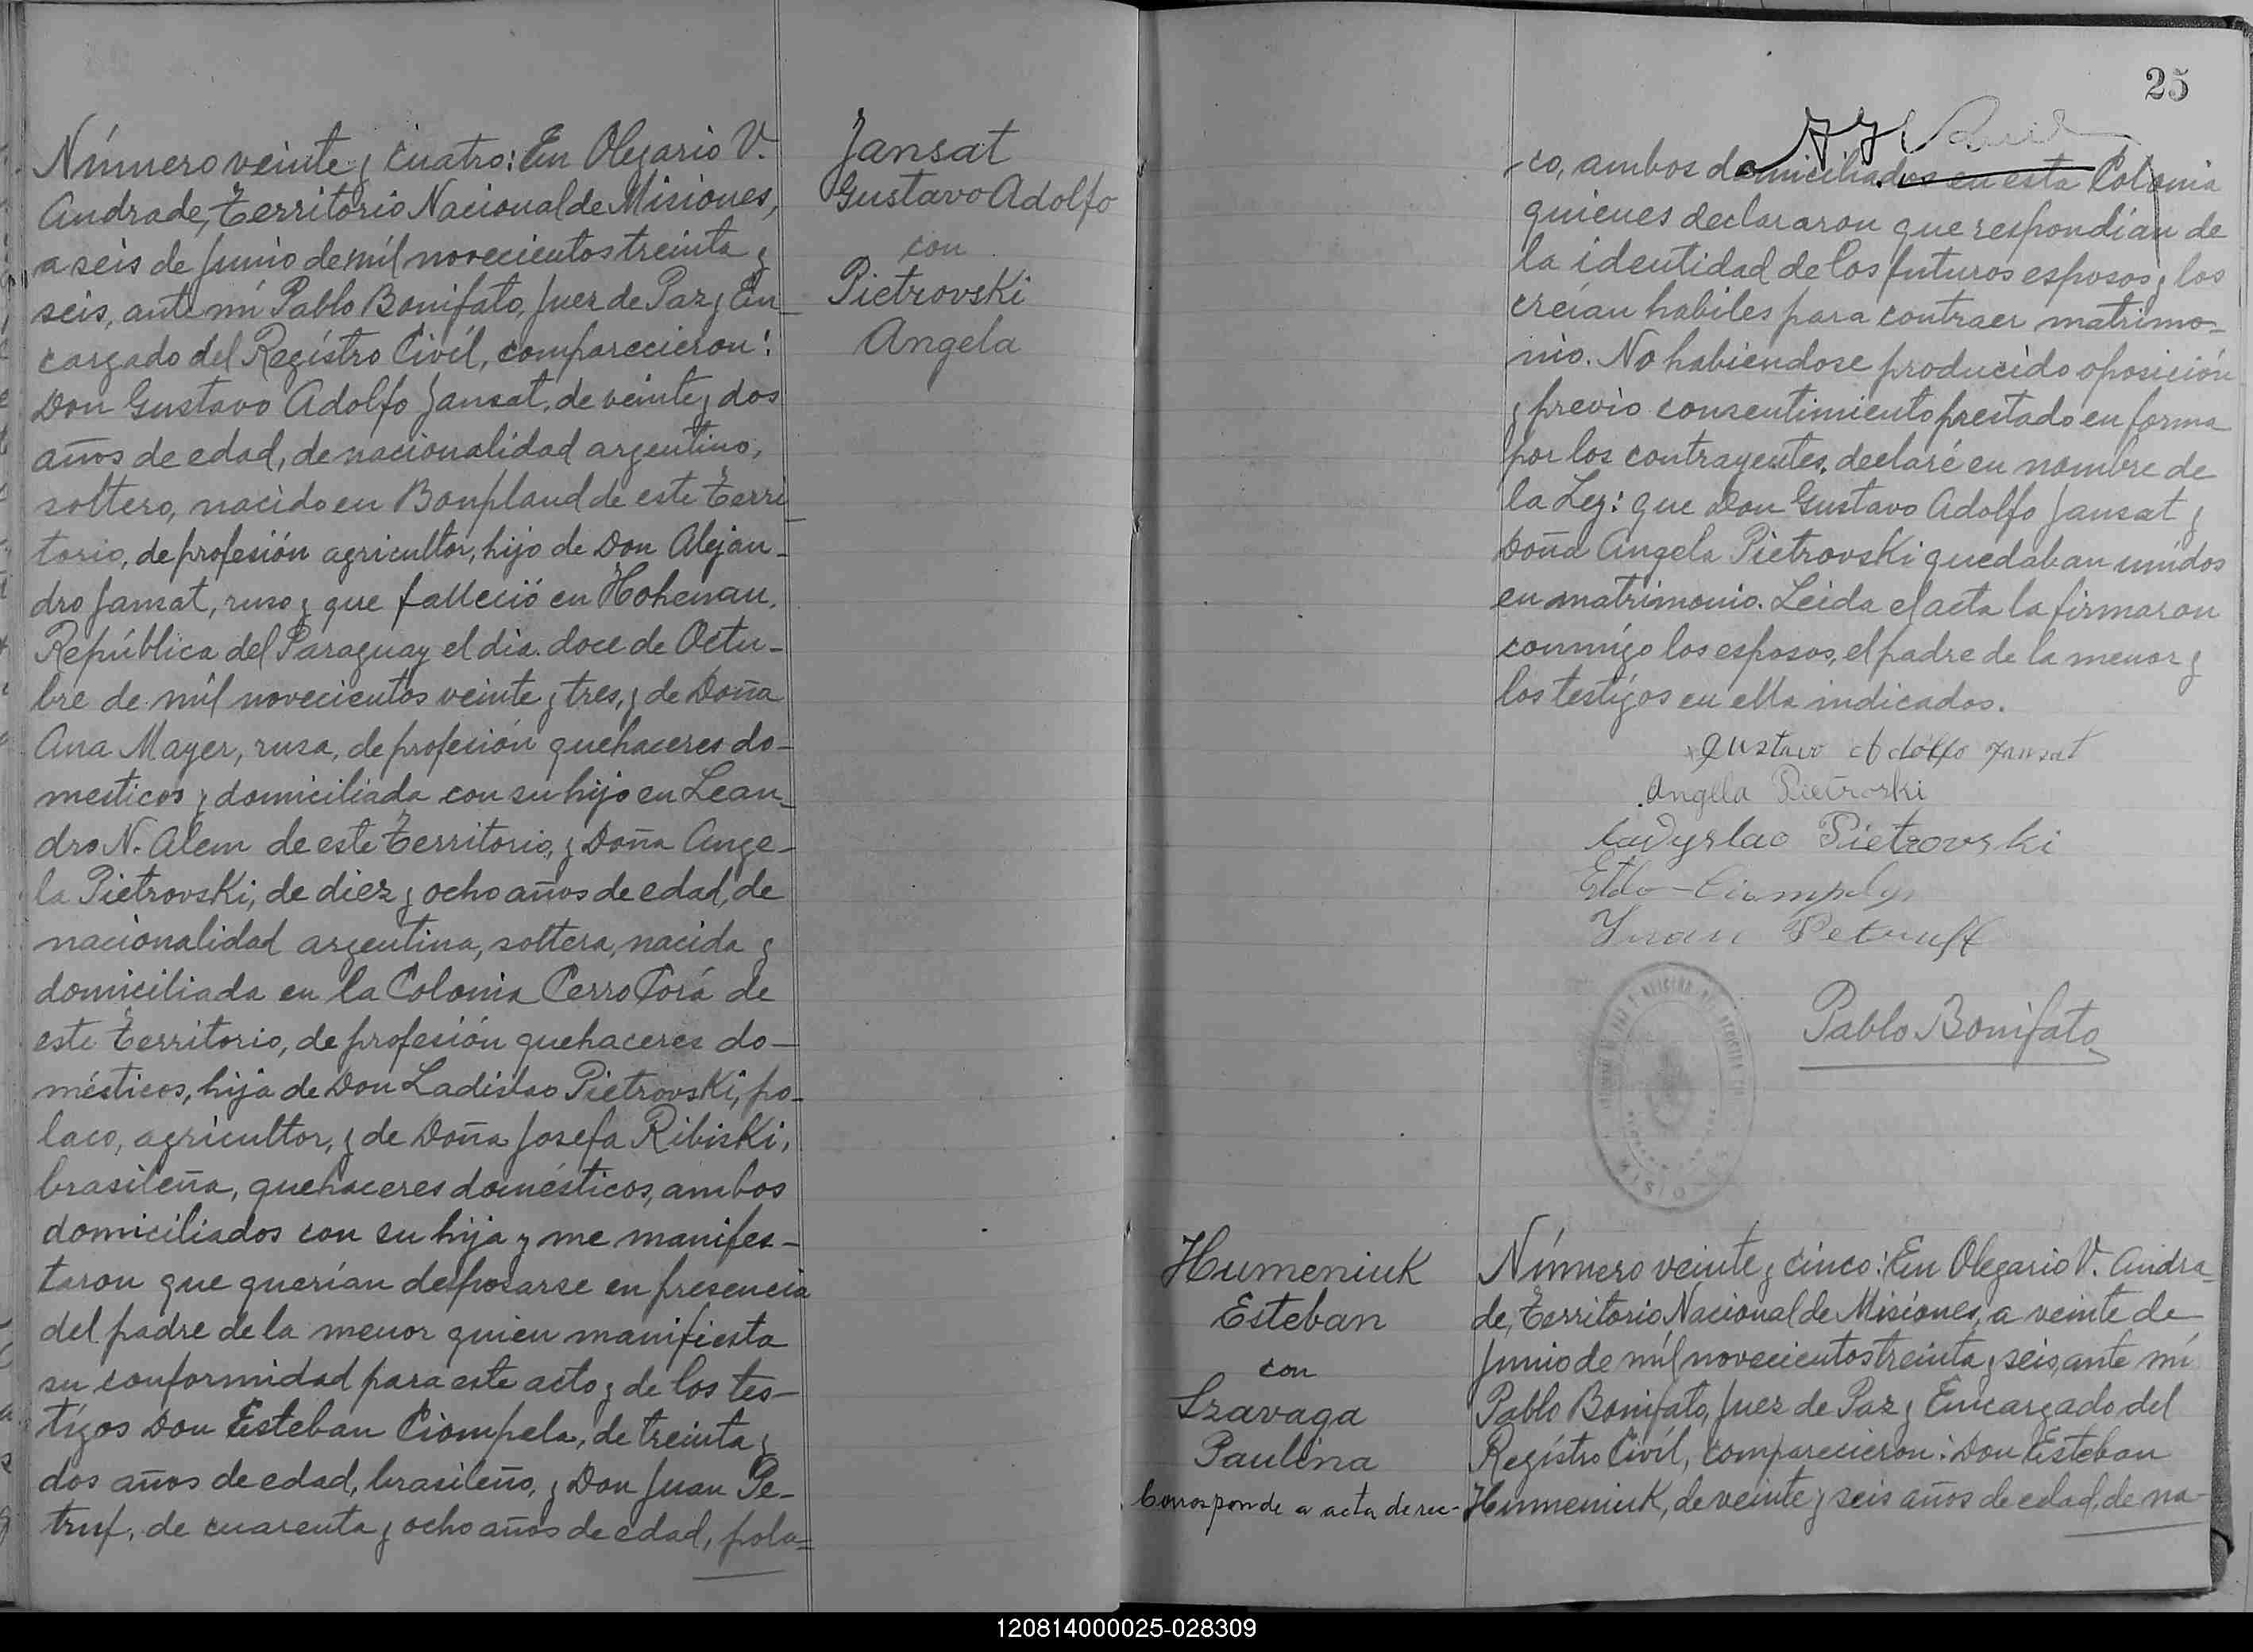 Número veinte y cuatro: En Olegario V.
Andrade, Territorio Nacional de Misiones,
a seis de Junio de mil novecientos treinta y
seis, ante mí Pablo Bonifato, Juez de Paz y En-
cargado del Regístro Civíl, comparecieron:
Don Gustavo Adolfo Jansat, de veinte y dos
años de edad, de nacionalidad argentino,
soltero, nacido en Bonpland de este Terri-
torio, de profesión agricultor, hijo de Don Alejan-
dro Jansat, ruso y que falleció en Hohenau,
República del Paraguay el día doce de Octu-
bre de mil novecientos veinte y tres, y de Doña
Ana Mayer, rusa, de profesión quehaceres do-
mesticos y domiciliada con su hijo en Lean-
dro N. Alem de este Territorio, y Doña Ange-
la Pietrovski, de diez y ocho años de edad, de
nacionalidad argentina, soltera, nacida y
domiciliada en la Colonia Cerro Corá de
este Territorio, de profesión quehaceres do-
mésticos, hija de Don Ladislao Pietrovski, po-
laco, agricultor, y de Doña Josefa Ribiski,
brasileña, quehaceres domésticos, ambos
domiciliados con su hija y me manifes-
taron que querían desposarse en presencia
del padre de la menor quien manifiesta
su conformidad para este acto y de los tes-
tígos Don Esteban Ciompela, de treinta y
dos años de edad, brasileño, y Don Juan Pe-
truf, de cuarenta y ocho años de edad, pola-
Jansat
Gustavo Adolfo
con
Pietrovski
Angela
25
co, ambos domiciliados en esta Colonia
quienes declararon que respondían de
la identidad de los futuros esposos y los
creían habiles para contraer matrimo-
nio. No habiendose producido oposición
y previo consentimiento prestado en forma
por los contrayentes, declaré en nombre de
la Ley: que Don Gustavo Adolfo Jansat y
Doña Angela Pietrovski quedaban unidos
en matrimonio. Leida el acta la firmaron
conmigo los esposos, el padre de la menor y
los testígos en ella indicados.
Gustavo Adolfo Jansat
Angela Pietroski
Ladyslao Pietrovski
Juan Petruff
Pablo Bonifato
Humeniuk
Esteban
con
Szavaga
Paulina
Corresponde a acta de rec-
Número veinte y cinco: En Olegario V. Andra-
de, Territorio Nacional de Misiones, a veinte de
Junio de mil novecientos treinta y seis, ante mí
Pablo Bonifato, Juez de Paz y Encargado del
Regístro Civíl, comparecieron: Don Esteban
Humeniuk, de veinte y seis años de edad, de na-
120814000025-028309